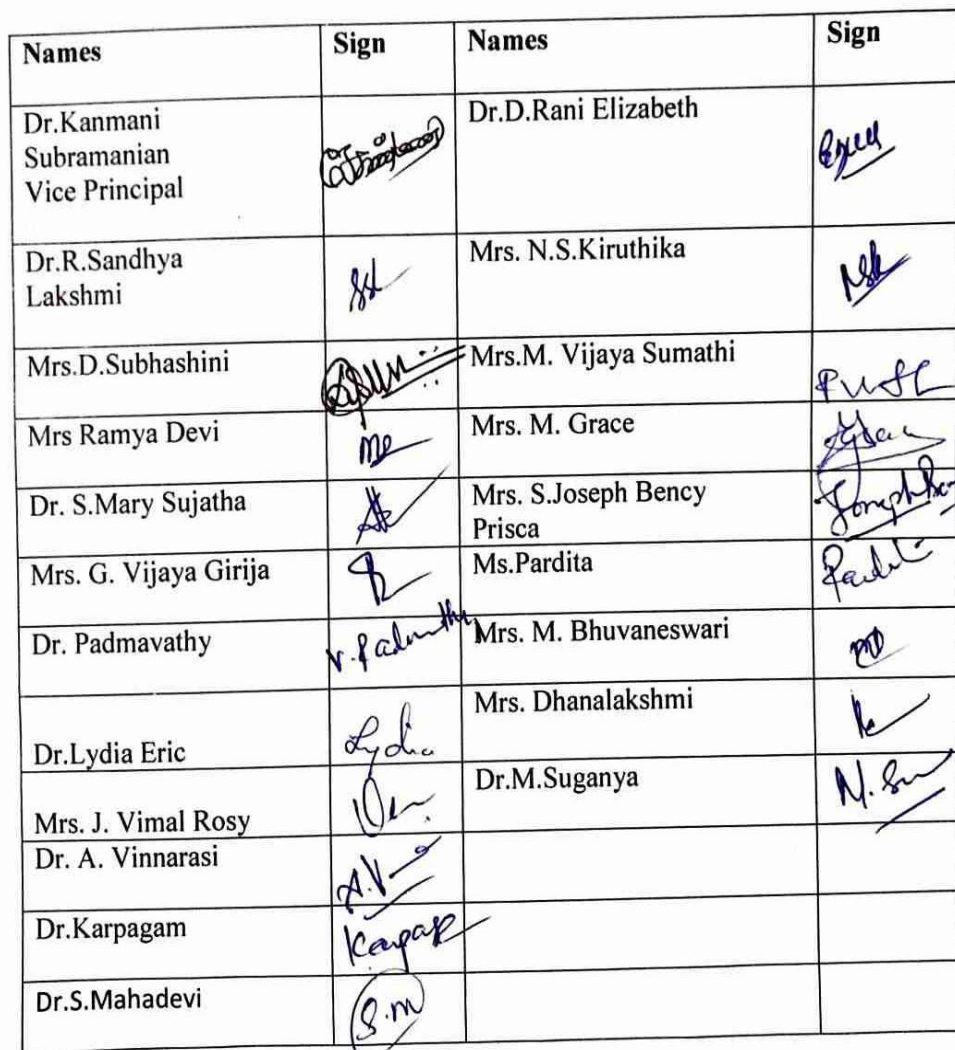 Names Sign Names Sign
Dr.Kanmani
Subramanian
Vice Principal
Dr.D.Rani Elizabeth
Dr.R.Sandhya
Lakshmi
Mrs. N.S.Kiruthika
Mrs.D.Subhashini
Mrs.M. Vijaya Sumathi
Mrs Ramya Devi
Mrs. M. Grace
Dr. S.Mary Sujatha
Mrs. S.Joseph Bency
Prisca
Mrs. G. Vijaya Girija
Ms.Pardita
Dr. Padmavathy V. Padmathy
Mrs. M. Bhuvaneswari
Dr.Lydia Eric Lydia
Mrs. Dhanalakshmi
Mrs. J. Vimal Rosy
Dr.M.Suganya
Dr. A. Vinnarasi A.V
Dr.Karpagam
Dr.S.Mahadevi S.m